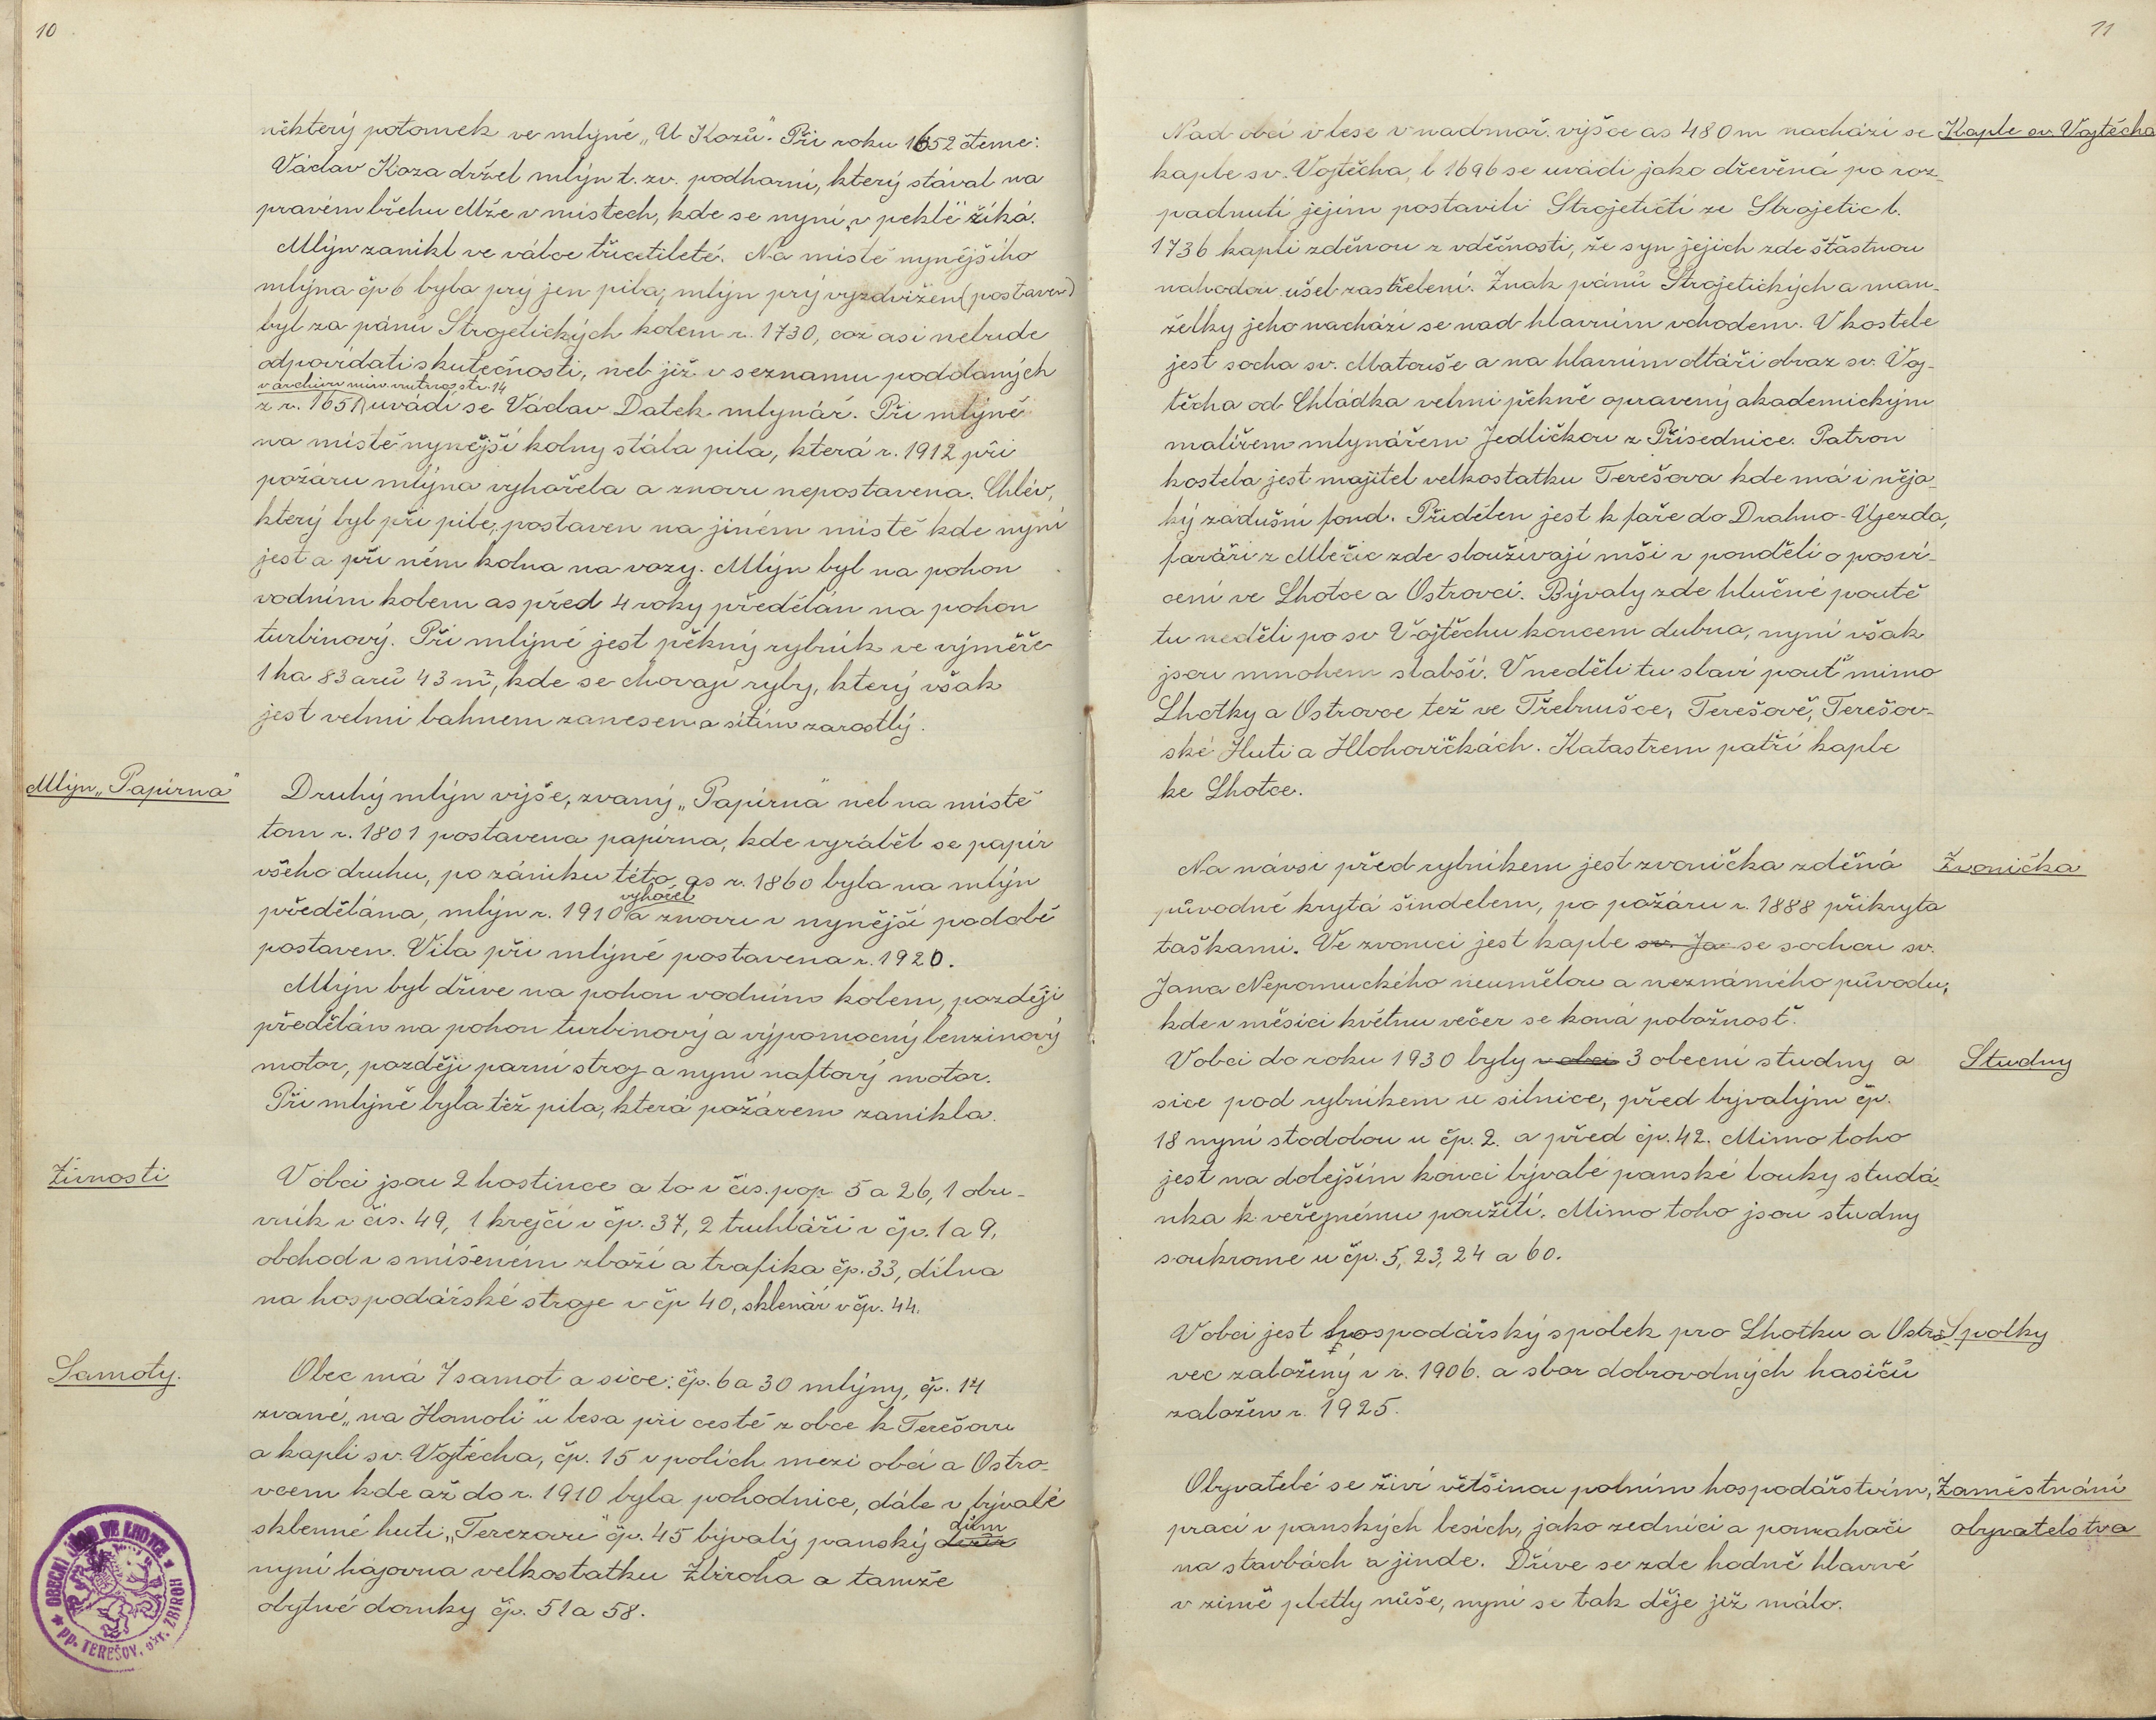 10
některý potomek ve mlýně „U Kozů". Při roku 1652 čteme:
Václav Koza držel mlýn t. zv. podharní, který stával na
pravém břehu Mže v místech, kde se nyní „v pekle" říká.
Mlýn zanikl ve válce třicetileté. Na místě nynějšího
mlýna čp 6 byla prý jen pila, mlýn prý vyzdvižen (postaven)
byl za pánů Strojetických kolem r. 1730, což asi nebude
odpovídati skutečnosti, neb již v seznamu poddaných
v archivu min. vnitra str. 14
z r. 1651 uvádí se Václav Datek mlynář. Při mlýně
na místě nynější kolny stála pila, která r. 1912 při
požáru mlýna vyhořela a znovu nepostavena. Chlév,
který byl při pile, postaven na jiném místě kde nyní
jest a při něm kolna na vozy. Mlýn byl na pohon
vodním kolem as před 4 roky předělán na pohon
turbinový. Při mlýně jest pěkný rybník ve výměře
1 ha 83 arů 43 m², kde se chovají ryby, který však
jest velmi bahnem zanesen a sítím zarostlý.
Mlýn „Papírna"
Druhý mlýn výše, zvaný „Papírna" neb na místě
tom r. 1801 postavena papírna, kde vyráběl se papír
všeho druhu, po zániku této as r. 1860 byla na mlýn
vyhořel
předělána, mlýn r. 1910 a znovu v nynější podobě
postaven. Vila při mlýně postavena r. 1920.
Mlýn byl dříve na pohon vodním kolem, později
předělán na pohon turbinový a výpomocný benzinový
motor, později parní stroj a nyní naftový motor.
Při mlýně byla též pila, která požárem zanikla.
Živnosti
V obci jsou 2 hostince a to v čís. pop. 5 a 26, 1 obu-
vník v čís. 49, 1 krejčí v čp. 37, 2 truhláři v čp. 1 a 9,
obchod v smíšeném zboží a trafika čp. 33, dílna
na hospodářské stroje v čp 40, sklenář v čp. 44.
Samoty.
Obec má 7 samot a sice: čp. 6 a 30 mlýny, čp. 14
zvané „na Homoli" u lesa při cestě z obce k Terešovu
a kapli sv. Vojtěcha, čp. 15 v polích mezi obcí a Ostro-
vcem kde až do r. 1910 byla pohodnice, dále v bývalé
dům
sklenné huti „Terezově" čp. 45 bývalý panský
nyní hájovna velkostatku Zbiroha a tamže
obytné domky čp. 51 a 58.
OBECNÍ ÚŘAD VE LHOTCE
pp. TEREŠOV, okr. ZBIROH
11
Nad obcí v lese v nadmoř. výšce as 480 m nachází se
Kaple sv. Vojtěcha
kaple sv. Vojtěcha, l. 1696 se uvádí jako dřevěná po roz-
padnutí jejím postavili Strojetičtí ze Strojetic l.
1736 kapli zděnou z vděčnosti, že syn jejich zde šťastnou
náhodou ušel zastřelení. Znak pánů Strojetických a man-
želky jeho nachází se nad hlavním vchodem. V kostele
jest socha sv. Matouše a na hlavním oltáři obraz sv. Voj-
těcha od Chládka velmi pěkně opravený akademickým
malířem mlynářem Jedličkou z Přísednice. Patron
kostela jest majitel velkostatku Terešova kde má i něja-
ký zádušní fond. Přidělen jest k faře do Drahno-Újezda,
faráři z Mlečic zde sloužívají mši v pondělí o posví-
cení ve Lhotce a Ostrovci. Bývaly zde hlučné poutě
tu neděli po sv Vojtěchu koncem dubna, nyní však
jsou mnohem slabší. V neděli tu slaví pouť mimo
Lhotky a Ostrovce též ve Třebnušce, Terešově, Terešov-
ské Huti a Hlohovičkách. Katastrem patří kaple
ke Lhotce.
Na návsi před rybníkem jest zvonička zděná
Zvonička
původně krytá šindelem, po požáru r. 1888 přikryta
taškami. Ve zvonici jest kaple sv. Ja se sochou sv.
Jana Nepomuckého neumělou a neznámého původu,
kde v měsíci květnu večer se koná pobožnosť.
V obci do roku 1930 byly v obci 3 obecní studny a
Studny
sice pod rybníkem u silnice, před bývalým čp.
18 nyní stodolou u čp. 2. a před čp. 42. Mimo toho
jest na dolejším konci bývalé panské louky studá-
nka k veřejnému použití. Mimo toho jsou studny
soukromé u čp. 5, 23, 24 a 60.
V obci jest hospodářský spolek pro Lhotku a Ostro-
Spolky
vec založený v r. 1906. a sbor dobrovolných hasičů
založen r. 1925.
Obyvatelé se živí většinou polním hospodářstvím,
Zaměstnání
prací v panských lesích, jako zedníci a pomahači
obyvatelstva
na stavbách a jinde. Dříve se zde hodně hlavně
v zimě pletly nůše, nyní se tak děje již málo.